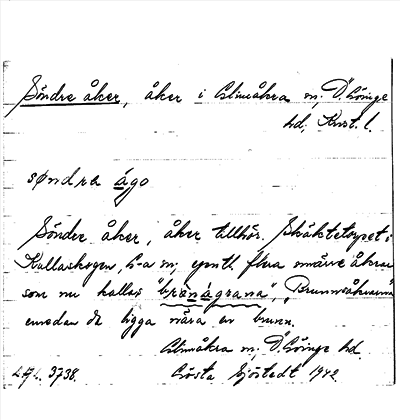 Söndre åker, åker i Glimåkra sn, Ö. Göinge
hd, Krist. l.
søndra ågo
Söndre åker, åker tillhör. Skäktetorpet i
Kullaskogen, G-a sn, egentl. flera mindre åkrar
som nu kallas "brønågrana", "Brunnsåkrarna"
emedan de ligga nära en brunn.
Glimåkra sn, Ö. Göinge hd.
L.A. 3738. Gösta Sjöstedt 1942.